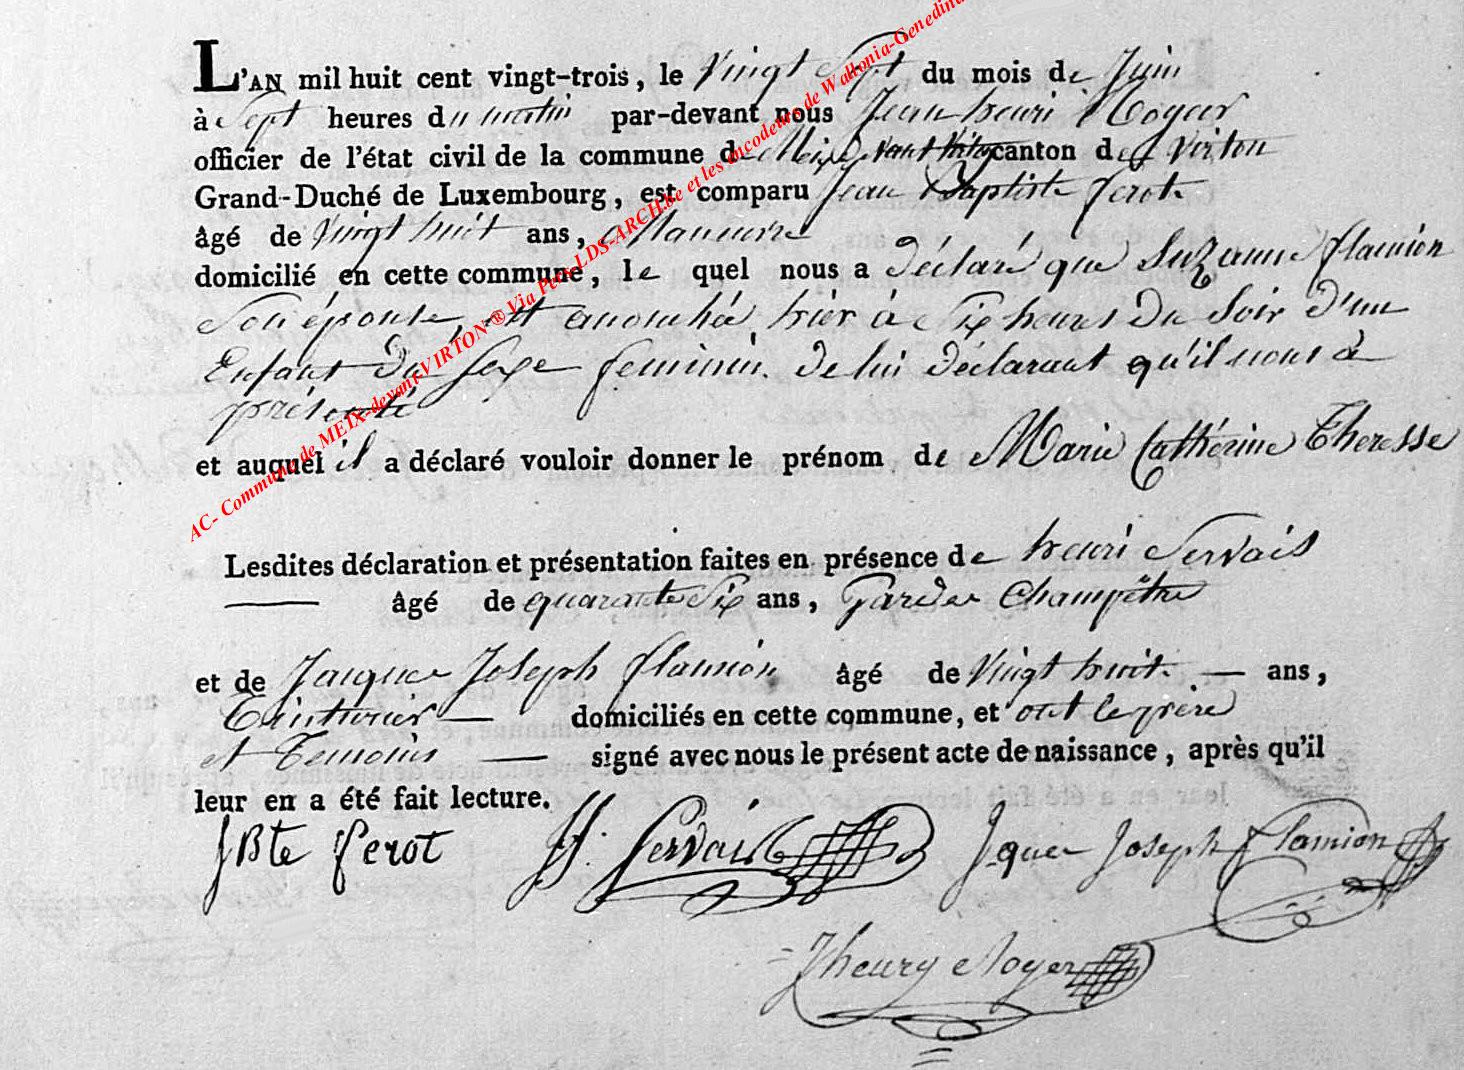 L'AN mil huit cent vingt-trois, le Vingt Sept du mois de Juin
à Sept heures du matin par-devant nous Jean henri Noyer
officier de l'état civil de la commune de Meix devant Virton canton de Virton
Grand-Duché de Luxembourg, est comparu Jean Baptiste ferot
âgé de Vingt huit ans, Manœuvre
domicilié en cette commune, le quel nous a déclaré que Suzanne flamion
Son épouse, est accouchée, hier à Six heures du Soir d'un
Enfant du Sexe feminin. de lui déclarant qu'il nous à
présenté
et auquel il a déclaré vouloir donner le prénom de Marie Cathérine Theresse
Lesdites déclaration et présentation faites en présence de henri Servais
âgé de quarante Six ans, Garde Champêtre
et de Jacques Joseph flamion âgé de Vingt huit ans,
Teinturier domiciliés en cette commune, et ont le père
et Temoins signé avec nous le présent acte de naissance, après qu'il
leur en a été fait lecture.
JBte ferot H. Servais Jques Joseph flamion
Jhenry Noyer
AC- Commune de MEIX-devant-VIRTON ® Via Pers LDS-ARCH.be et les encodeurs de Wallonia-Genedind